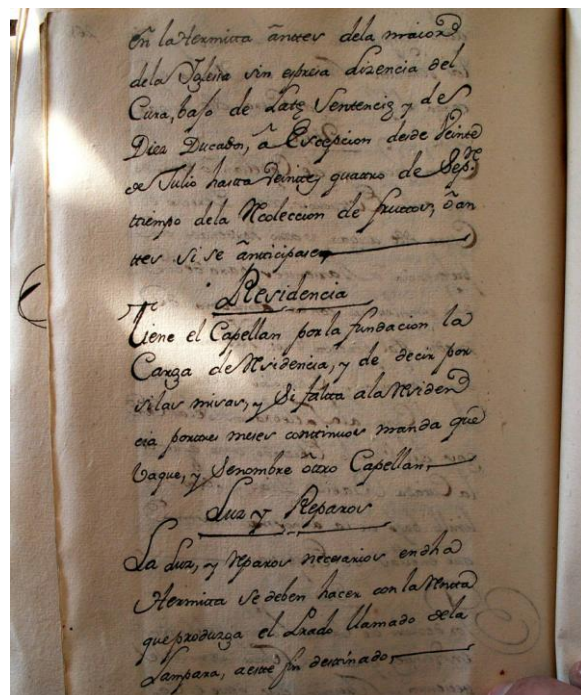 En la Hermitta ânttes dela maior
dela Iglesia sin espresa lizencia del
Cura, bajo de Latæ Sentenciæ y de
Diez Ducados, â Escepcion desde Veinte
de Julio hastta Veintte y quattro de Sepre
ttiempo dela Recoleccion de fructtos, ô an
ttes si se ântticipase
Residencia
Tiene el Capellan por la fundacion la
Carga de Residencia, y de decir por
si las misas, y Si faltta ala Residen
cia por tres meses conttinuos manda qûe
Vaque, y Se nombre ôttro Capellan,
Luz y Reparos
La Luz, y Reparos necesarios en dha
Hermitta se deben hacer con la Rentta
que produzga el Prado llamado dela
Lampara, a estte fin desttinado,